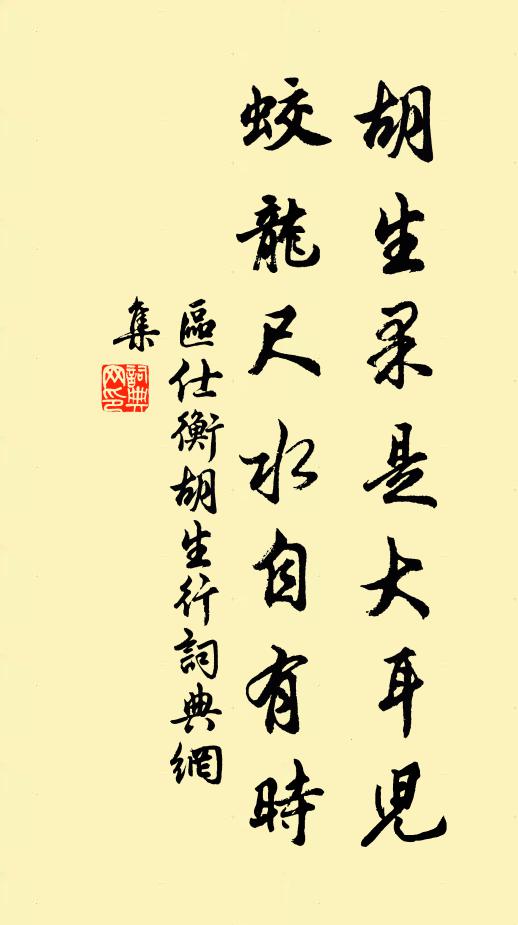 胡生果是大耳兒
蛟龍尺水自有時
區仕衡胡生行詞典網
集
詞典網印